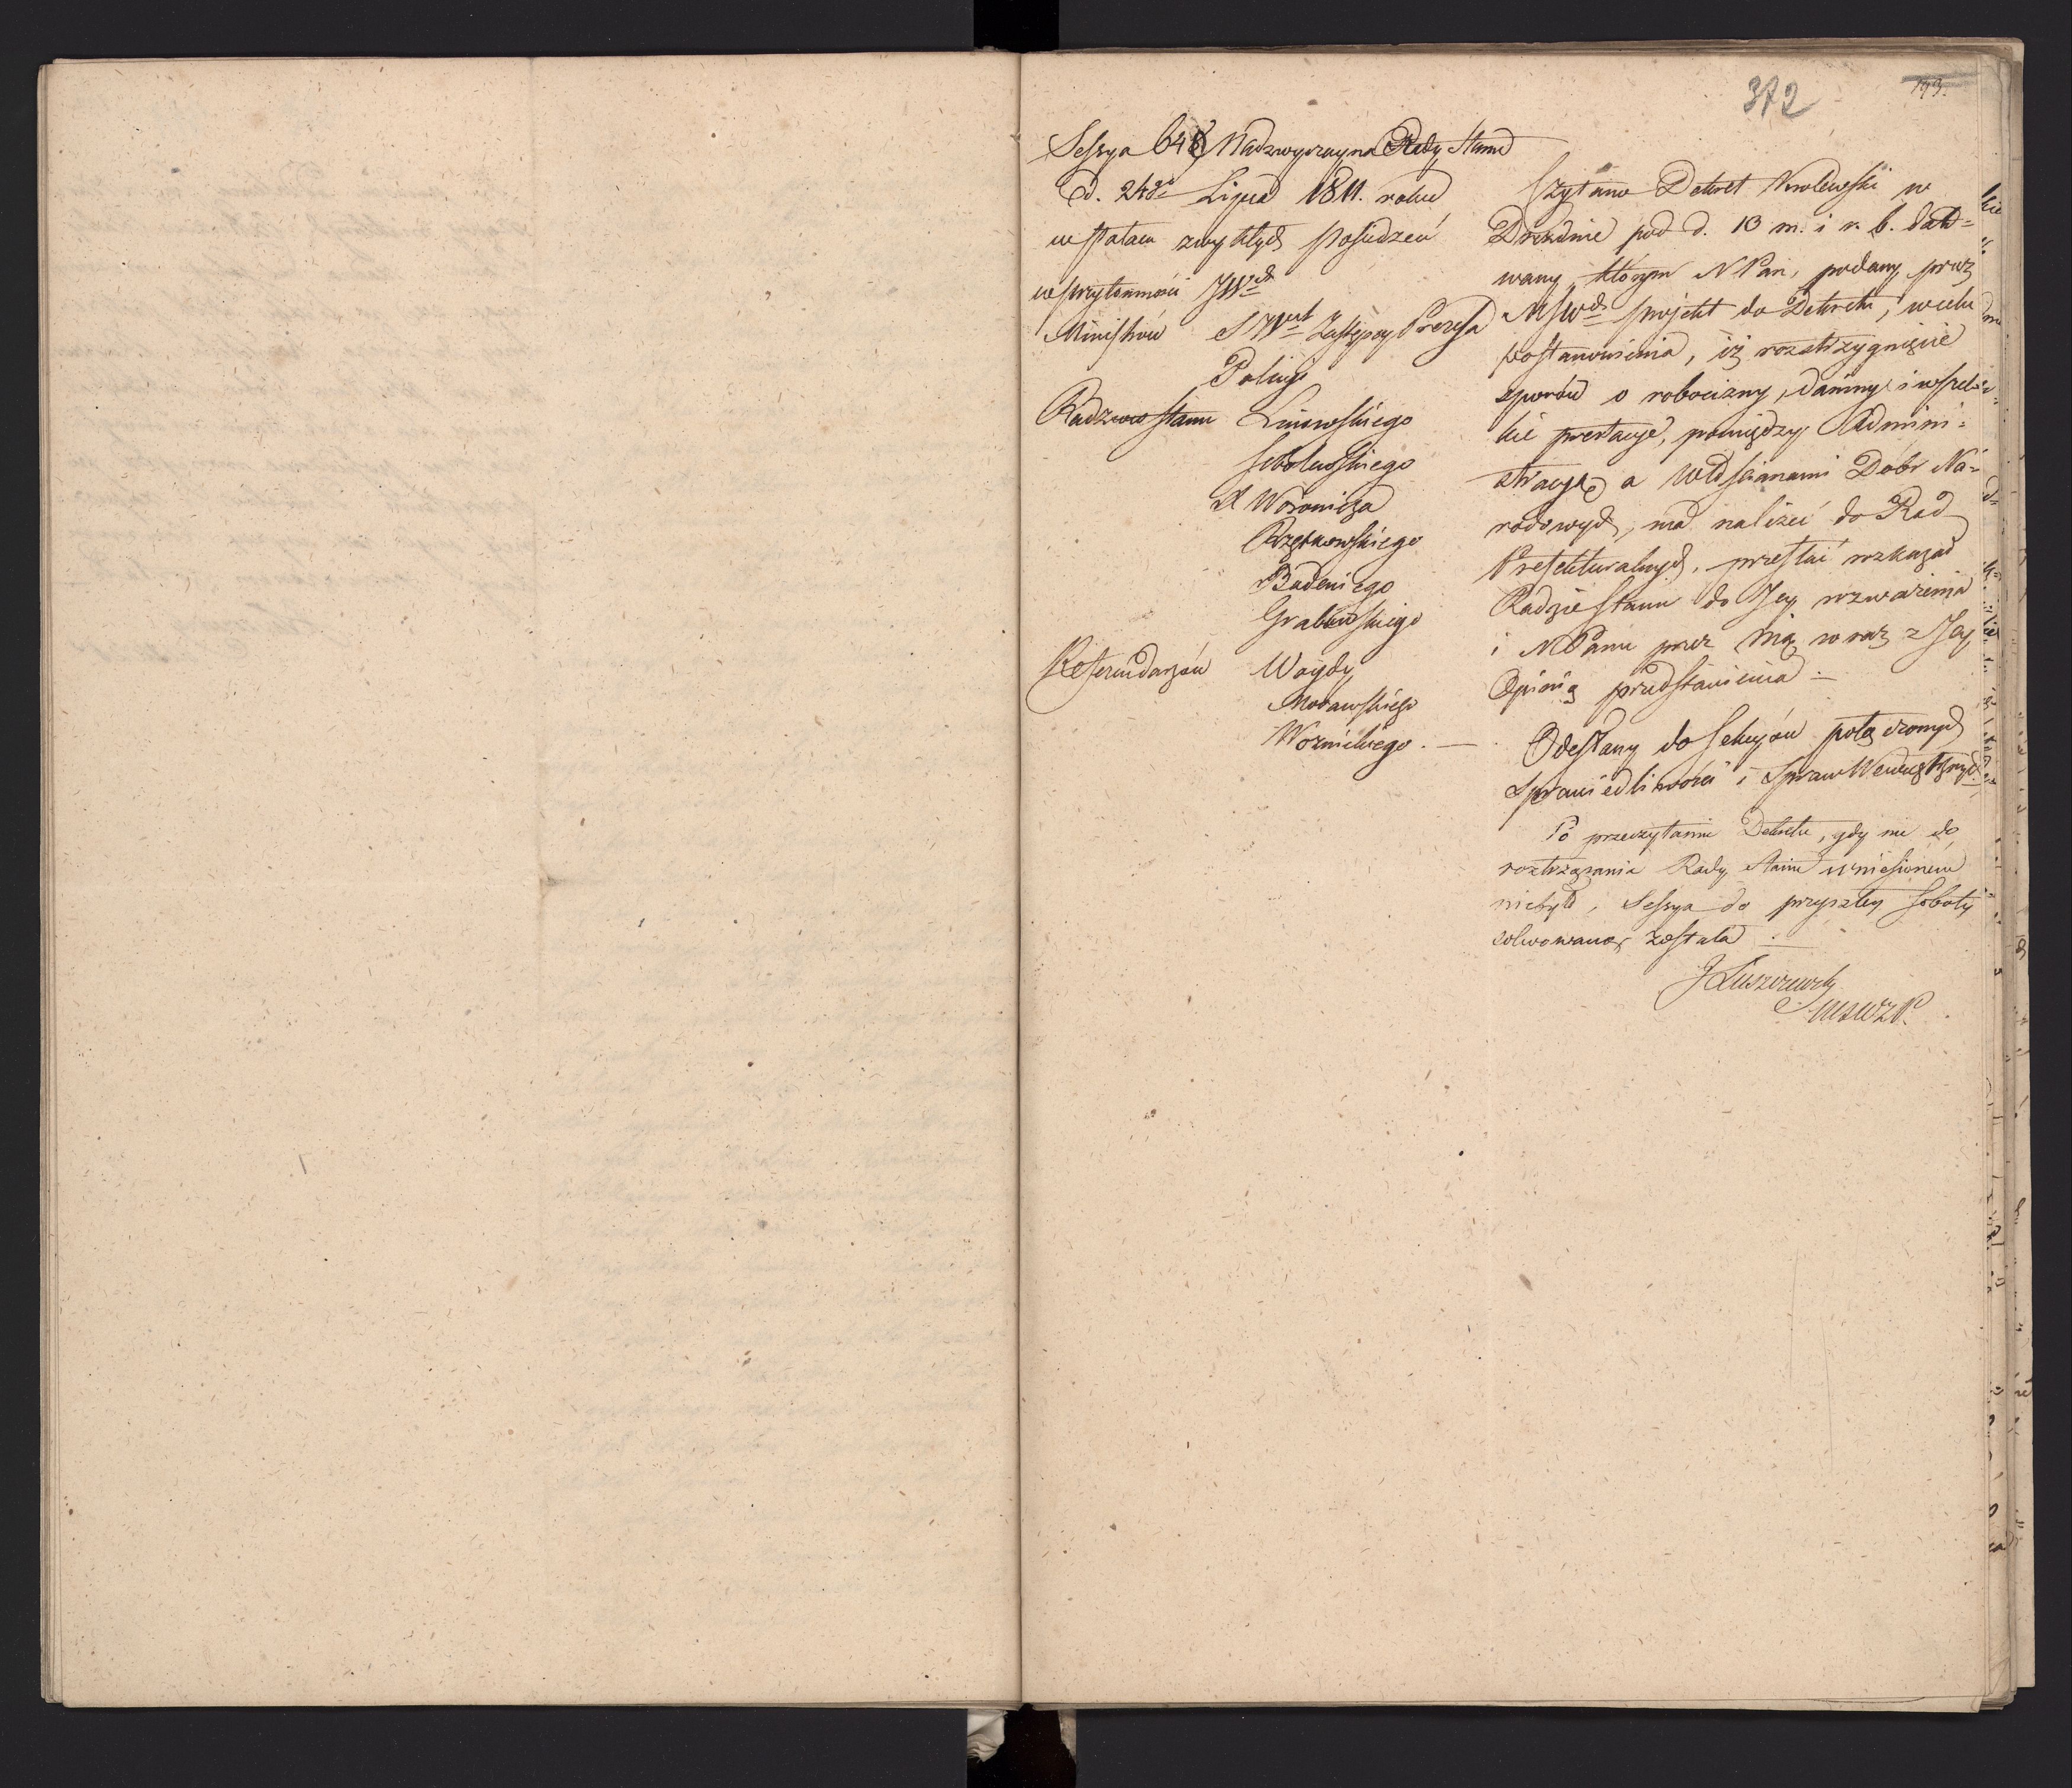 372
193.
Sessya 648 Nadzwyczayna Rady Stanu
d. 24go Lipca 1811. roku
w Pałacu zwykłych Posiedzeń
w przytomności JWch
Ministrów JW Zastępcy Prezesa
Policyi
Radzców Stanu Linowskiego
Sobolewskiego
X Woronicza
Rzętkowskiego
Badeniego
Grabowskiego
Referendarzów Woydy
Morawskiego
Woznickiego. —
Czytano Dekret Krolewski w
Dreźnie pod d. 13 m. i r. b. dato=
wany, którym N Pan, podany przez
MSWch projekt do Dekretu, w celu
postanowienia, iż rozstrzygnięcie
sporów o robocizny, daniny i wszel=
kie prestacye, pomiędzy Admini=
stracyą a Włościanami Dobr Na=
rodowych, ma należeć do Rad
Prefekturalnych, przesłać rozkazał
Radzie Stanu do Jey rozważenia
i N Panu przez Nią wraz z Jey
Opinią przedstawienia. —
Odesłany do Sekcyów połączonych
Sprawiedliwości i Spraw Wewnętrznych.
Po przeczytaniu Dekretu, gdy nic do
roztrząsania Rady Stanu wniesionem
niebyło, Sessya do przyszłey Soboty
solwowaną została.
J Łuszczewski